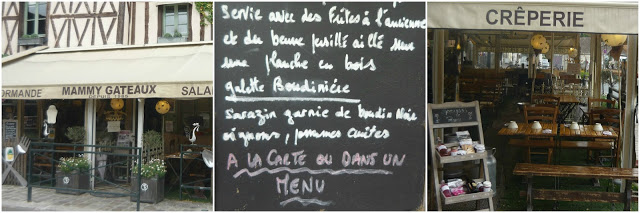 ORMANDE MAMMY GATEAUX SALA
DEPUIS 1946
Servie avec des Frites à l'ancienne
et du beurre persillé aillé sur
une planche en bois
galette Boudinière
Sarazin garnie de boudin Noir
oignons, pommes cuites
A LA CARTE OU DANS UN
MENU
CRÊPERIE